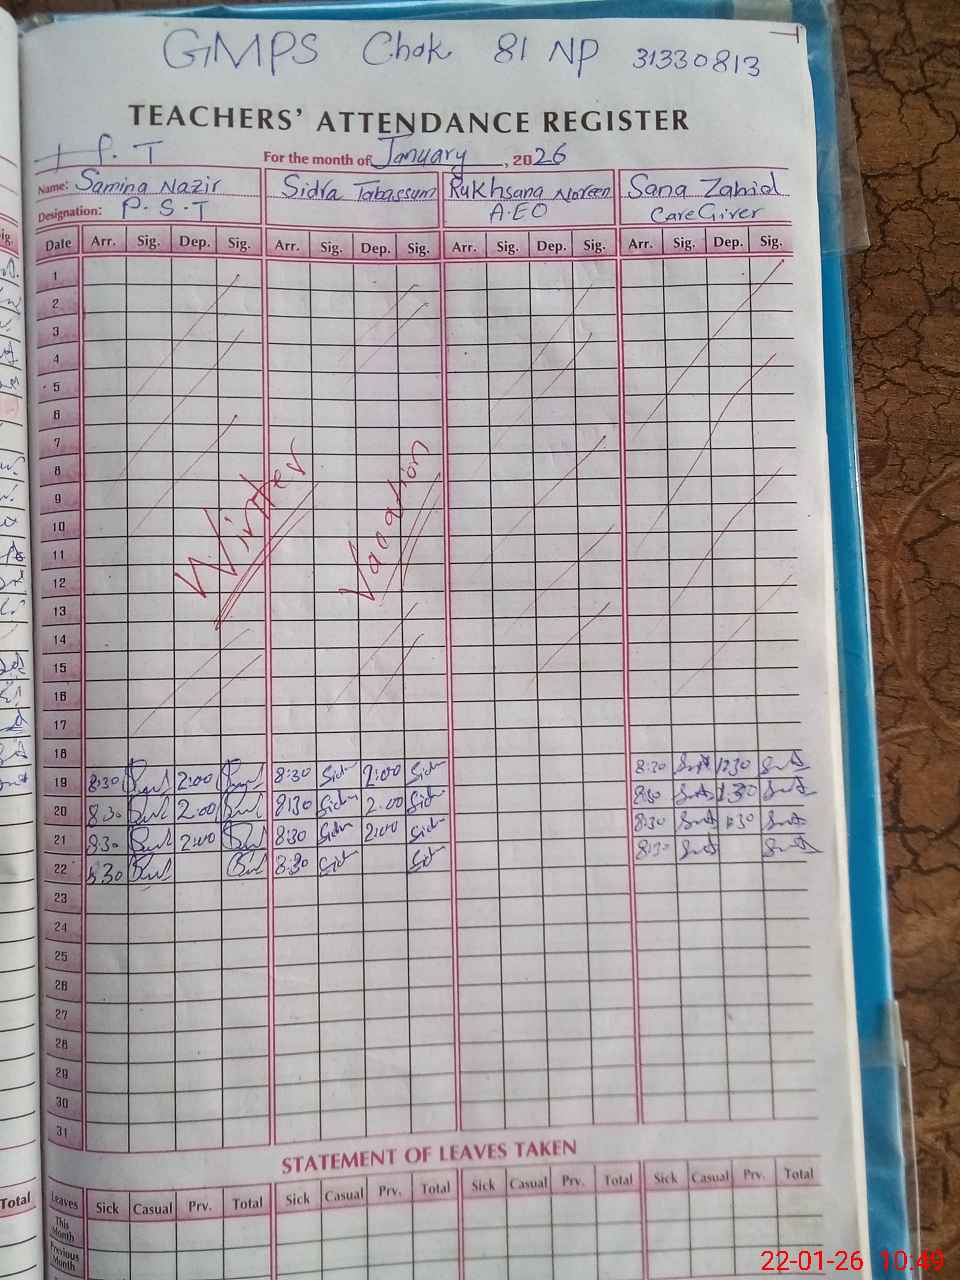 GMPS Chak 81 NP 31330813
TEACHERS' ATTENDANCE REGISTER
P. T For the month of January, 2026
Name: Samina Nazir Sidra Tabassum Rukhsana Noreen Sana Zahid
Designation: P.S.T A.EO Care Giver
Date Arr. Sig. Dep. Sig. Arr. Sig. Dep. Sig. Arr. Sig. Dep. Sig. Arr. Sig. Dep. Sig.
1
2
3
4
5
6
7
8
9
10
11
12
13
14
15
16
17
18
Winter Vacation
19 8:30 2:00 8:30 Sidra 2:00 Sidra 8:30 1:30
20 8:30 2:00 8:30 Sidra 2:00 Sidra 8:30 1:30
21 8:30 2:00 8:30 Sidra 2:00 Sidra 8:30 1:30
22 8:30 8:30 Sidra Sidra 8:30
23
24
25
26
27
28
29
30
31
STATEMENT OF LEAVES TAKEN
Leaves Sick Casual Prv. Total Sick Casual Prv. Total Sick Casual Prv. Total Sick Casual Prv. Total
This Month
Previous Month
Total
22-01-26 10:49